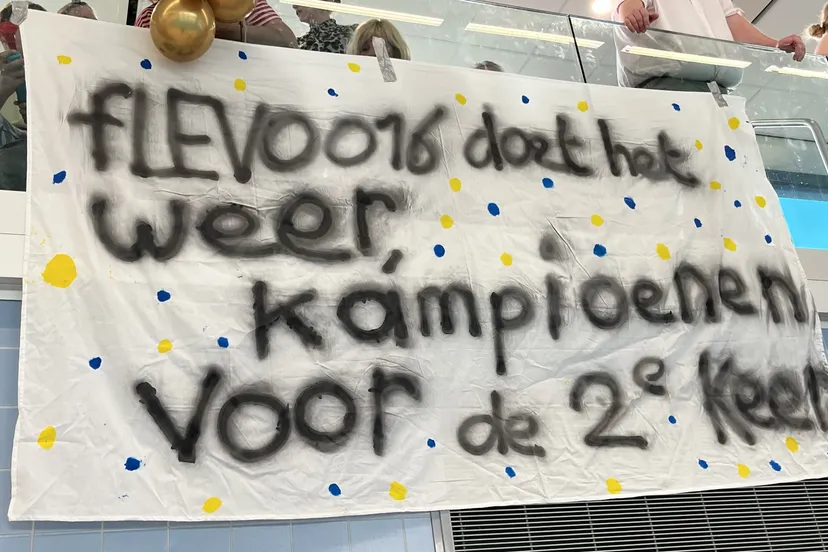 fLEVOO16 doet het
weer
kámpioenen
voor de 2e Keer